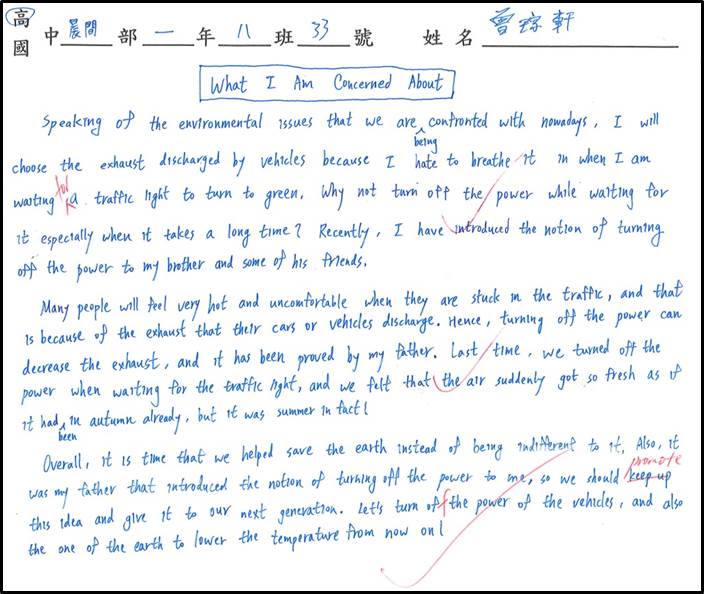 高
國 中 晨間 部 一 年 八 班 33 號 姓 名 曾琮軒
What I Am Concerned About
Speaking of the environmental issues that we are confronted with nowadays, I will
being
choose the exhaust discharged by vehicles because I hate to breathe it in when I am
for
waiting a traffic light to turn to green. Why not turn off the power while waiting for
it especially when it takes a long time? Recently, I have introduced the notion of turning
off the power to my brother and some of his friends.
Many people will feel very hot and uncomfortable when they are stuck in the traffic, and that
is because of the exhaust that their cars or vehicles discharge. Hence, turning off the power can
decrease the exhaust, and it has been proved by my father. Last time, we turned off the
power when waiting for the traffic light, and we felt that the air suddenly got so fresh as if
it had in autumn already, but it was summer in fact!
been
Overall, it is time that we helped save the earth instead of being indifferent to it. Also, it
promote
was my father that introduced the notion of turning off the power to me, so we should keep up
this idea and give it to our next generation. Let's turn off the power of the vehicles, and also
the one of the earth to lower the temperature from now on!